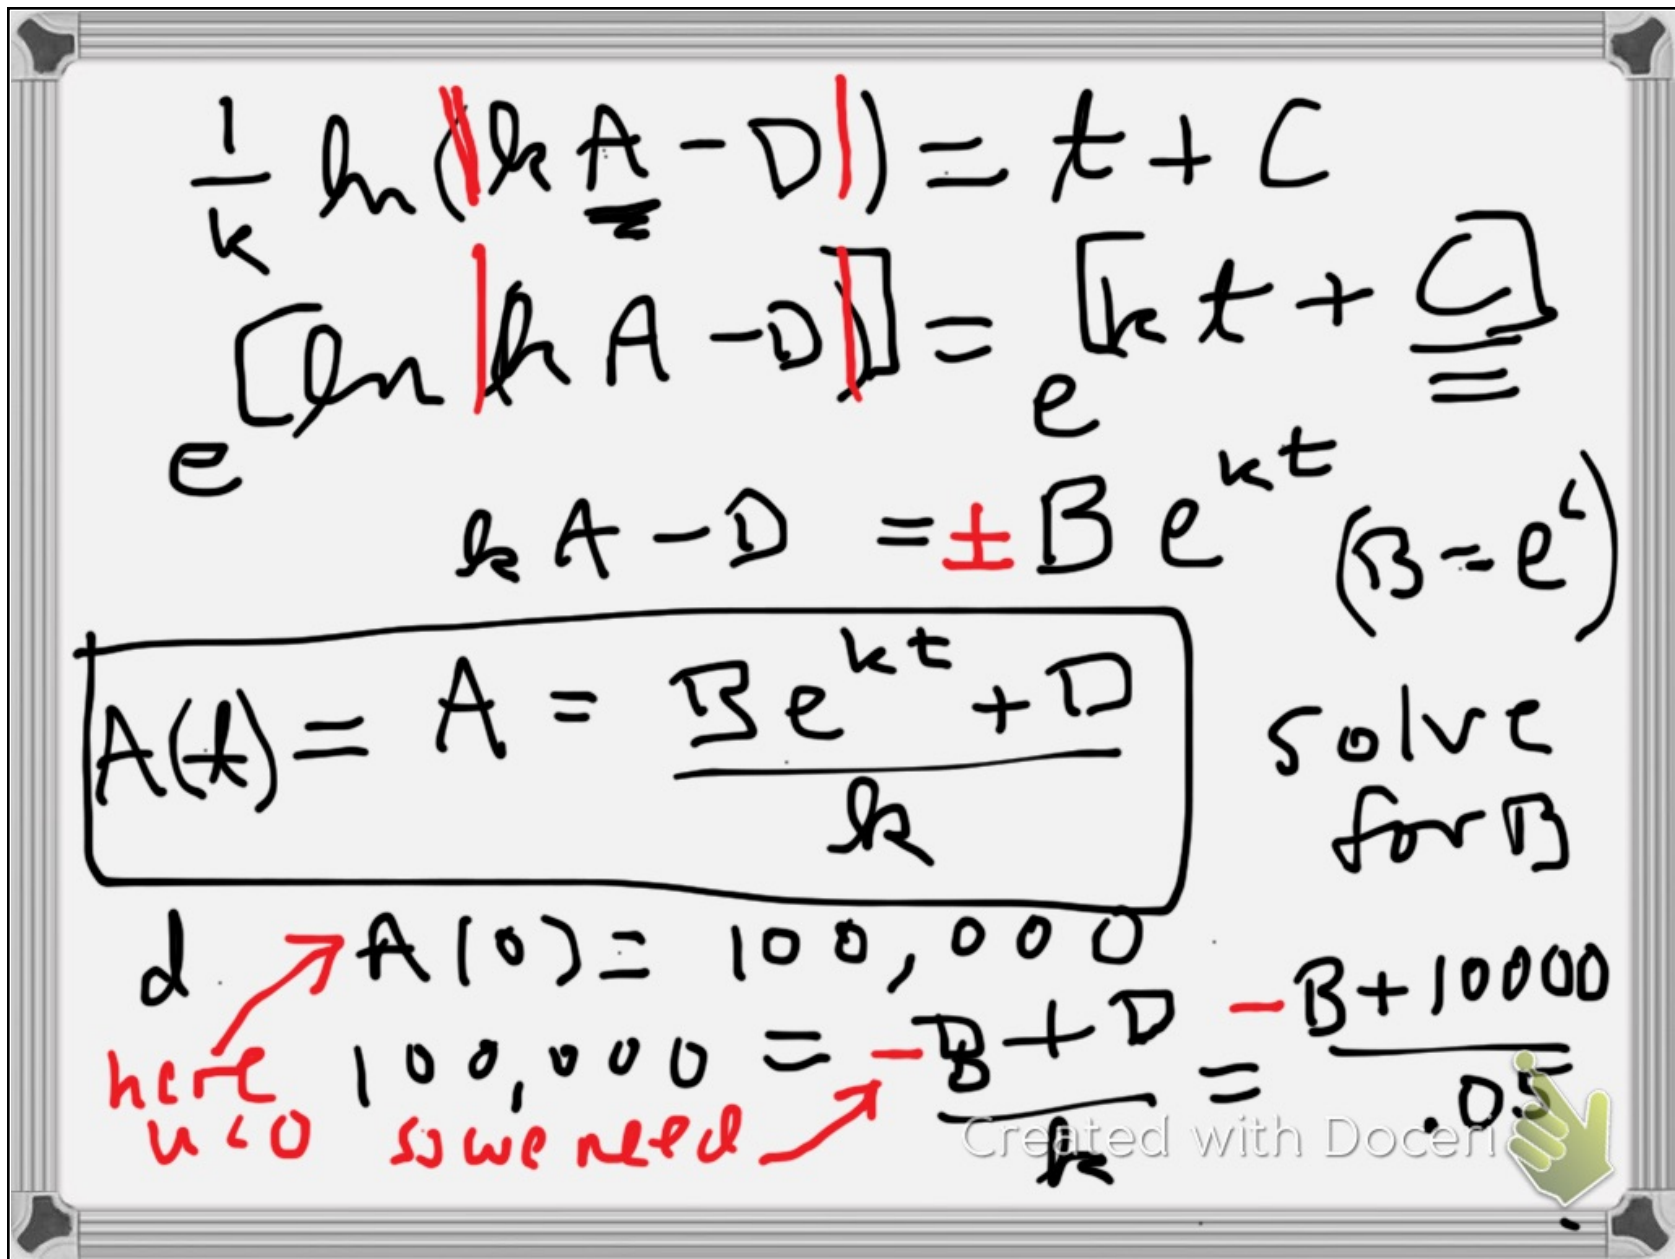 1/k ln(|kA - D|) = t + C
e^[ln|kA - D|] = e^[kt + C]
kA - D = ± B e^kt (B = e^c)
A(t) = A = (B e^kt + D)/k
solve
for B
d A(0) = 100,000
100,000 = (-B + D)/k = (-B + 10000)/.05
here
u < 0 so we need
Created with Doceri